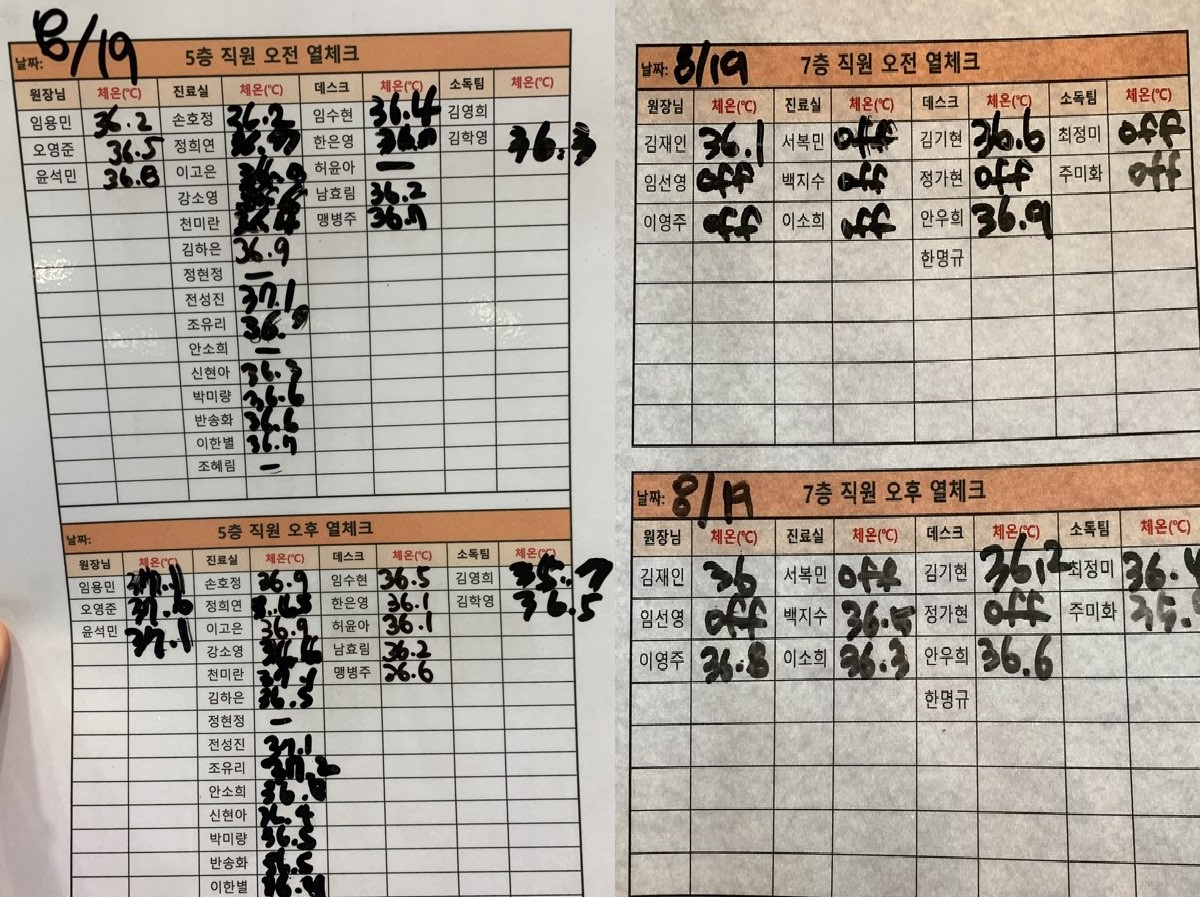 8/19
날짜: 5층 직원 오전 열체크
원장님 체온(℃) 진료실 체온(℃) 데스크 체온(℃) 소독팀 체온(℃)
임용민 36.2 손호정 36.2 임수현 36.4 김영희
오영준 36.5 정희연 한은영 김학영 36.3
윤석민 36.8 이고은 허윤아 —
강소영 남효림 36.2
천미란 36.4 맹병주 36.7
김하은 36.9
정현정 —
전성진 37.1
조유리
안소희 —
신현아
박미량 36.6
반송화 36.6
이한별 36.7
조혜림 —
날짜: 5층 직원 오후 열체크
원장님 체온(℃) 진료실 체온(℃) 데스크 체온(℃) 소독팀 체온(℃)
임용민 손호정 36.9 임수현 36.5 김영희 35.7
오영준 정희연 한은영 36.1 김학영 36.5
윤석민 37.1 이고은 36.9 허윤아 36.1
강소영 남효림 36.2
천미란 맹병주 36.6
김하은 36.5
정현정 —
전성진 37.1
조유리 37.2
안소희
신현아 36.4
박미량 36.5
반송화 36.5
이한별
날짜: 8/19 7층 직원 오전 열체크
원장님 체온(℃) 진료실 체온(℃) 데스크 체온(℃) 소독팀 체온(℃)
김재인 36.1 서복민 off 김기현 36.6 최정미 off
임선영 off 백지수 off 정가현 off 주미화 off
이영주 off 이소희 off 안우희 36.9
한명규
날짜: 8/19 7층 직원 오후 열체크
원장님 체온(℃) 진료실 체온(℃) 데스크 체온(℃) 소독팀 체온(℃)
김재인 36 서복민 off 김기현 36.2 최정미 36.4
임선영 off 백지수 36.5 정가현 off 주미화
이영주 36.8 이소희 36.3 안우희 36.6
한명규